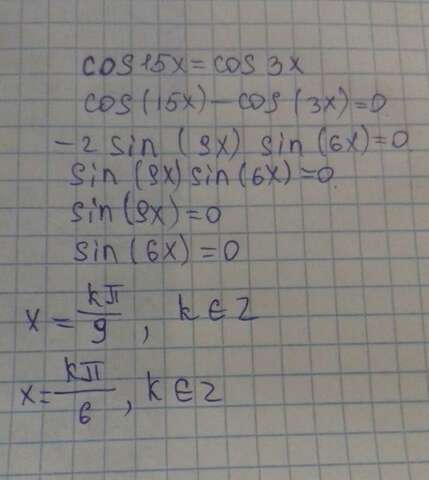 cos 15x = cos 3x
cos (15x) - cos (3x) = 0
-2 sin (9x) sin (6x) = 0
sin (9x) sin (6x) = 0
sin (9x) = 0
sin (6x) = 0
x = kπ/9, k ∈ Z
x = kπ/6, k ∈ Z